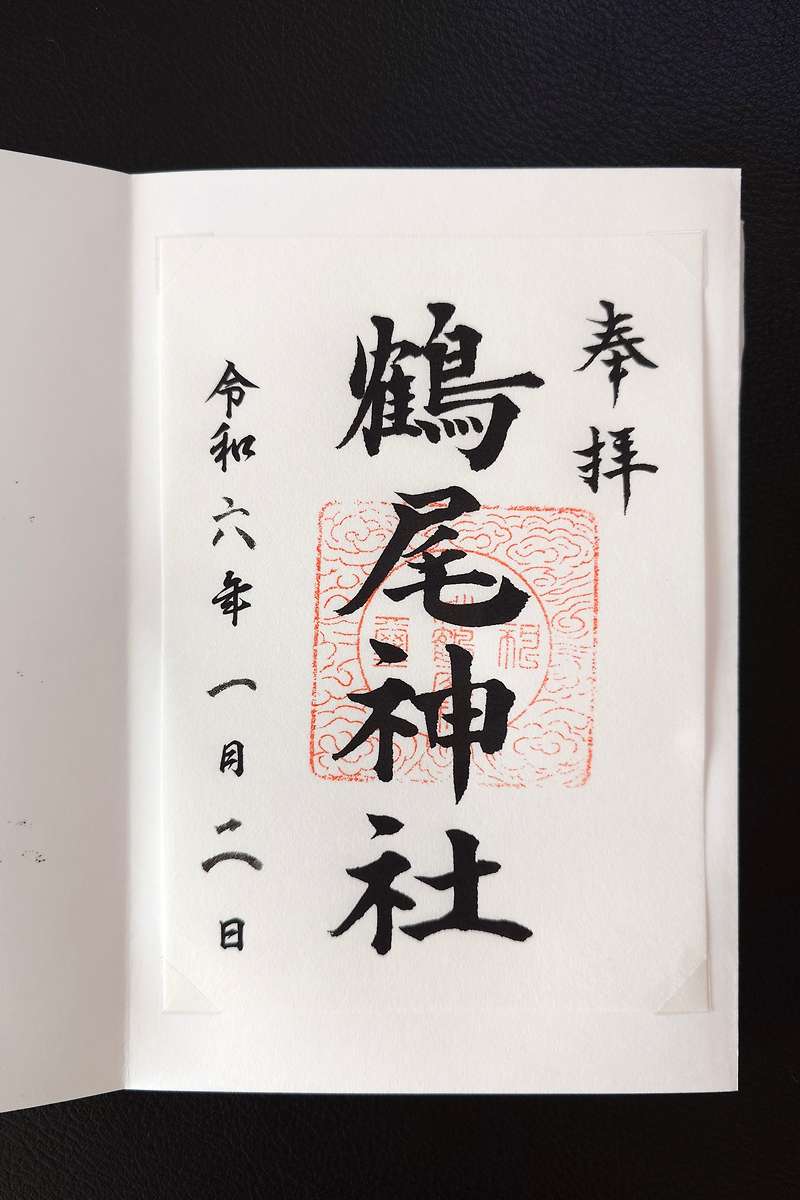 奉拝
鶴尾神社
令和六年一月二日